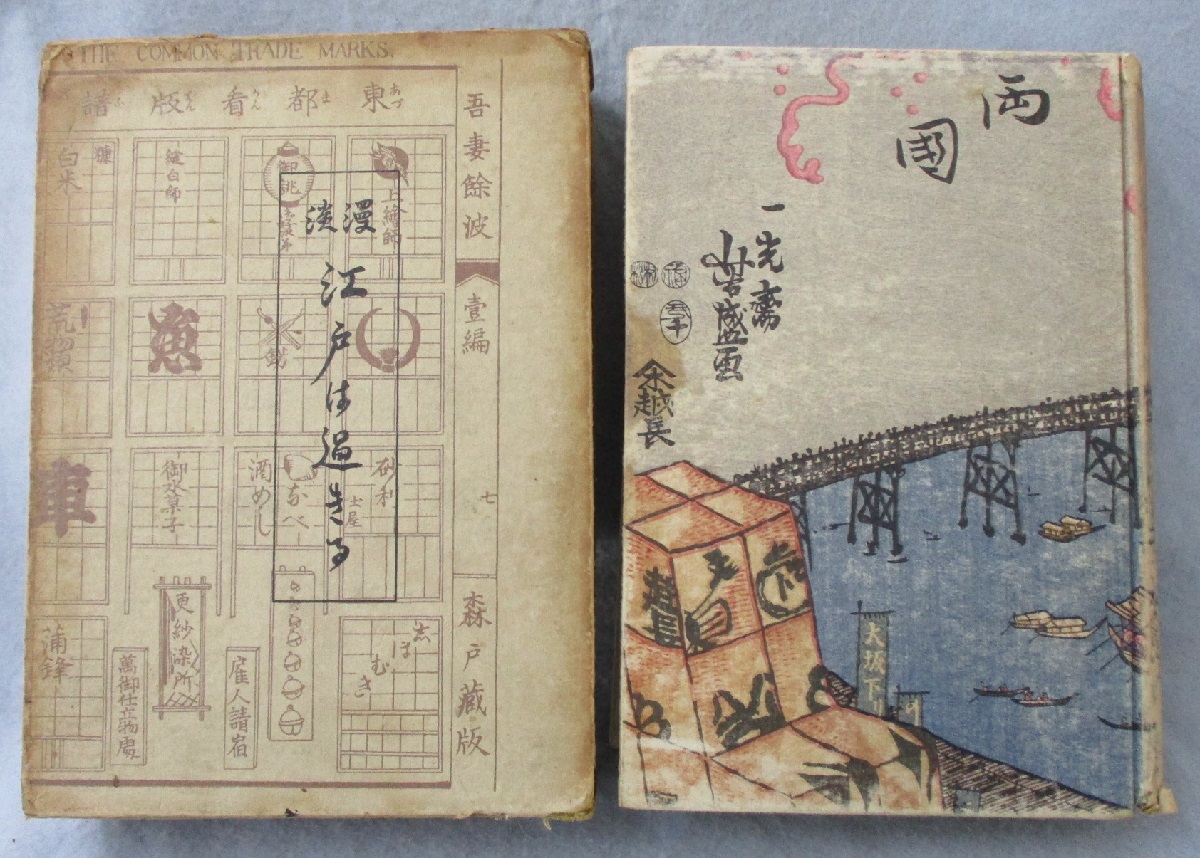 THE COMMON TRADE MARKS.
東都看版譜
吾妻餘波
壹編
七
森戸藏版
漫談
江戸は過ぎる
上繪師
御誂
白米
荒物
魚
車
御水菓子
酒めし
なべ
砂利
土屋
蒲鉾
萬御仕立物處
更紗染所
雇人請宿
志ほむき
両國
一光齋
芳盛画
木越長
大坂下